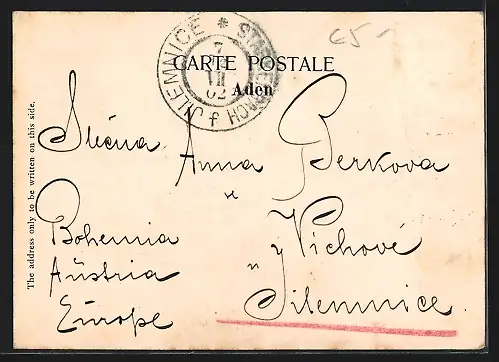 C51
JILEMNICE * STARKENBACH
7
VII
02
CARTE POSTALE
Aden
Slečna Anna Berkova
Bohemia
Austria
Europe
y Vichové
Jilemnice
The address only to be written on this side.